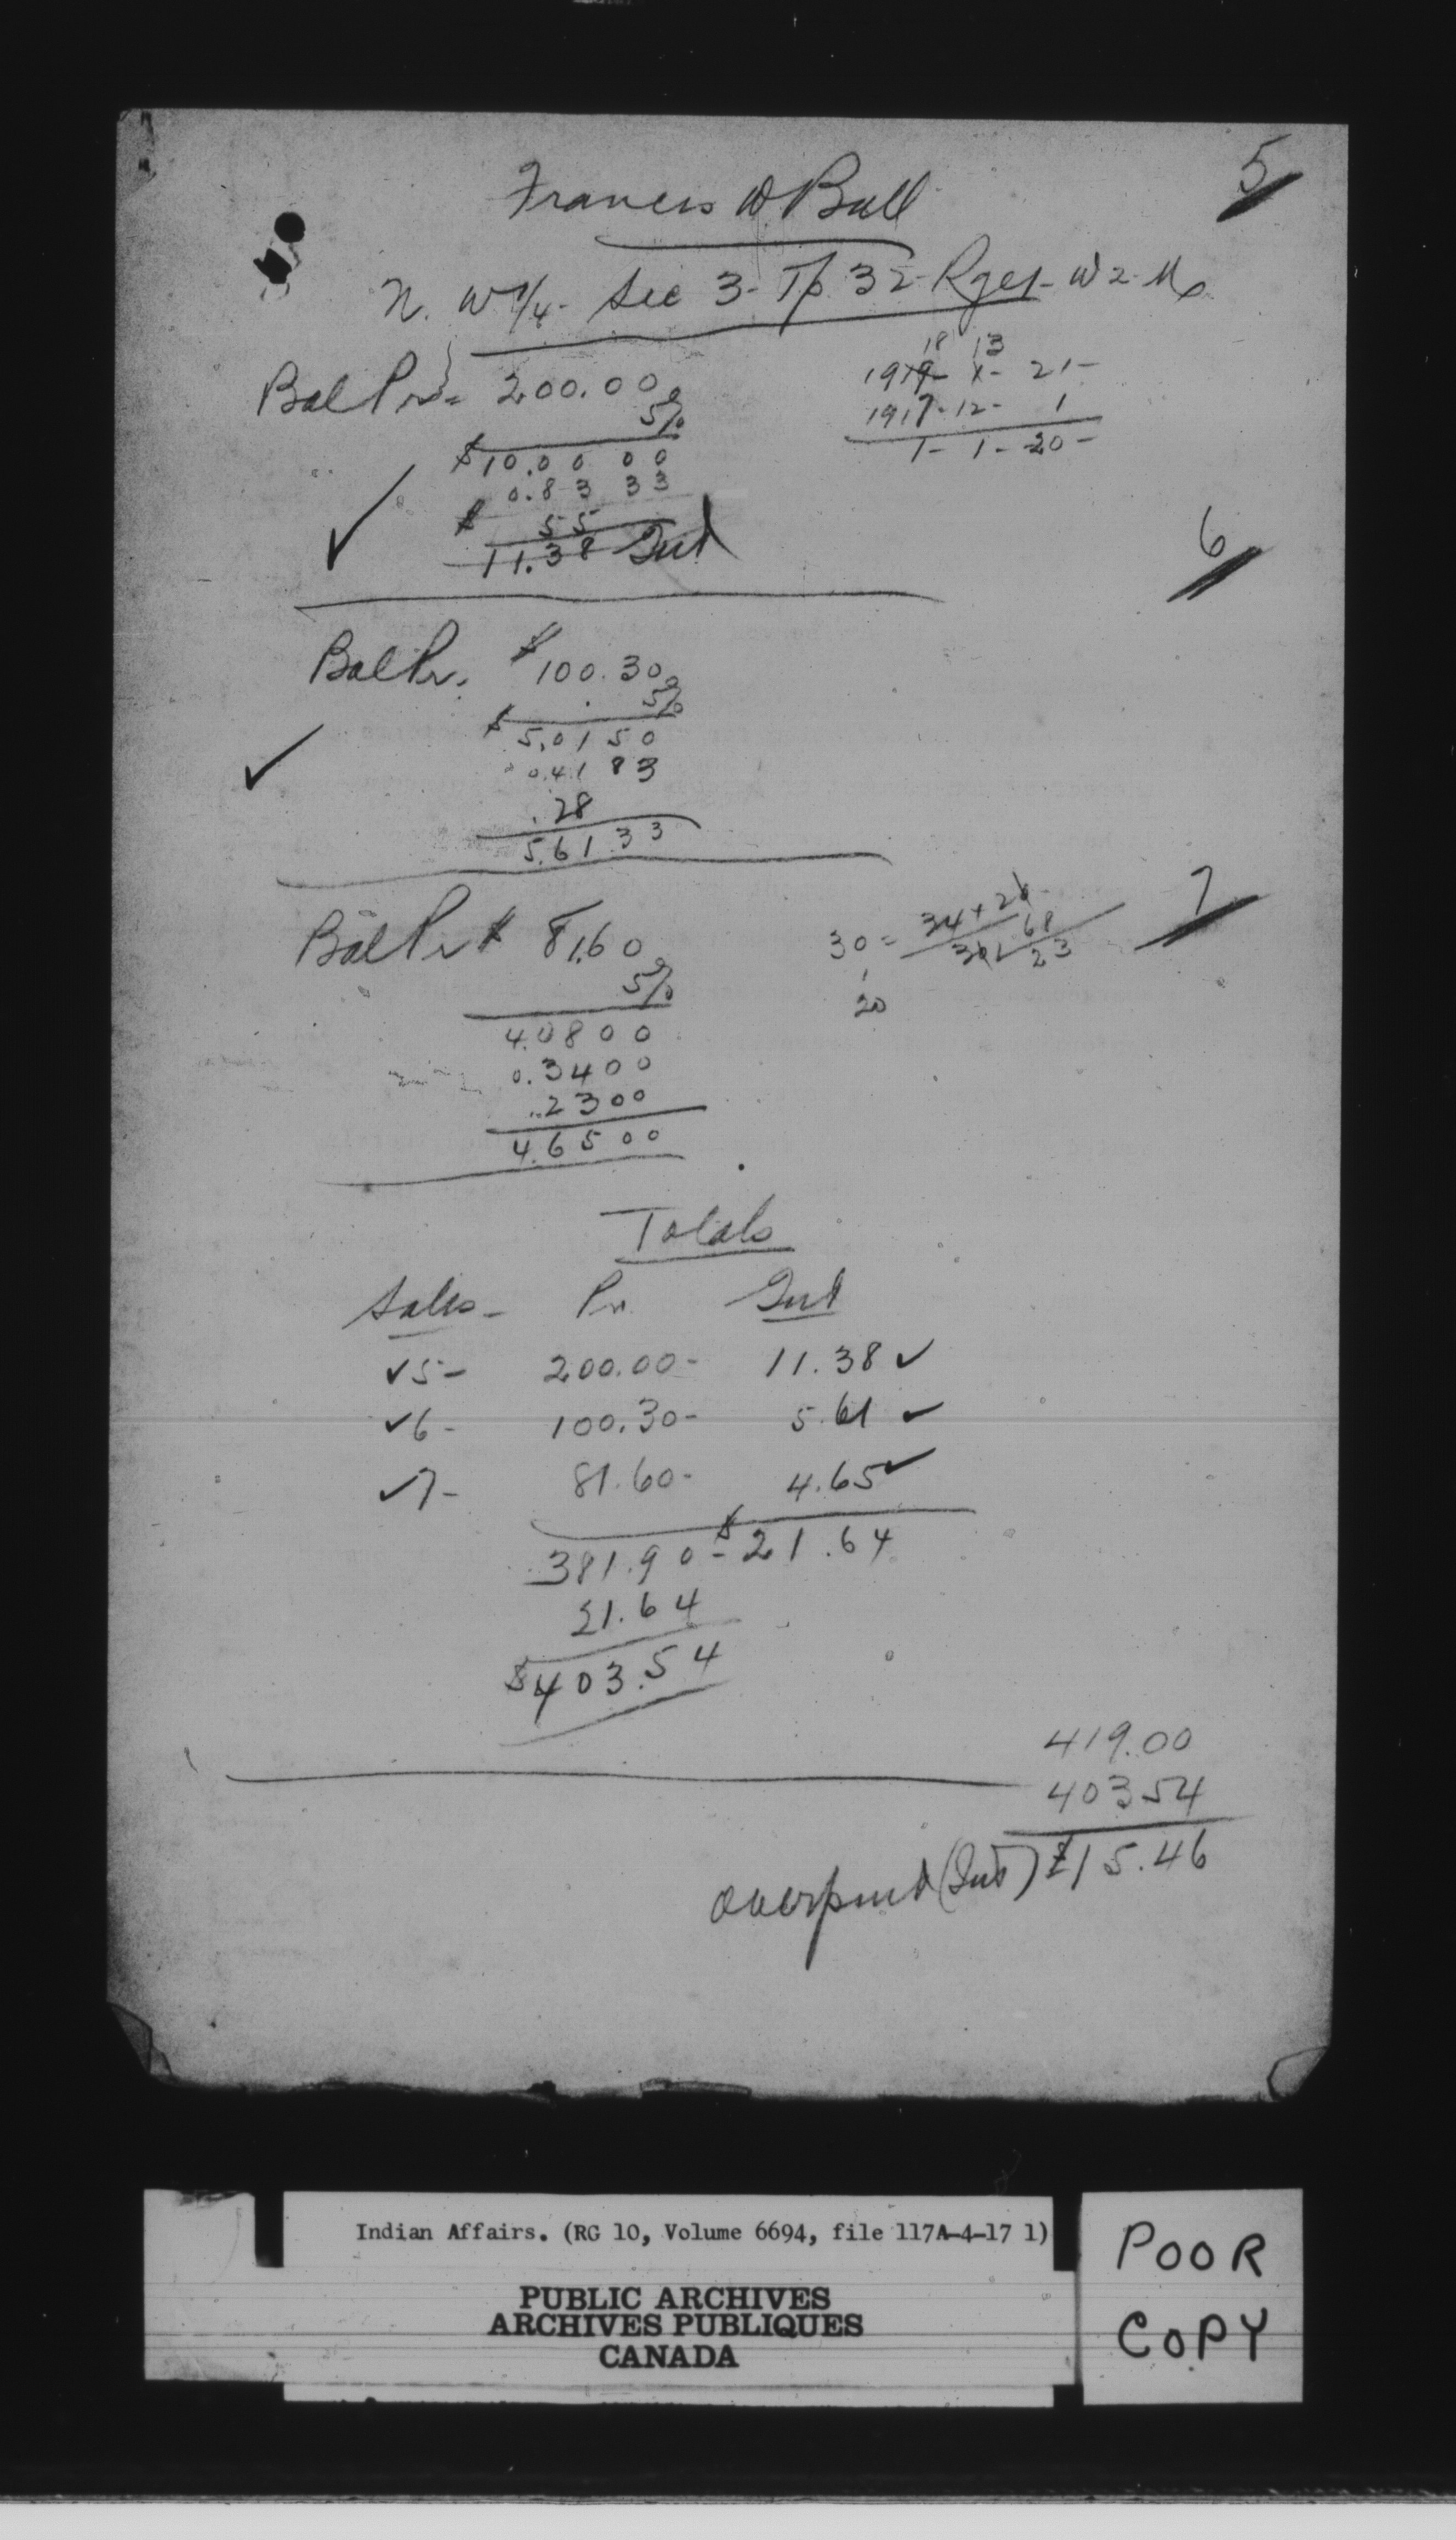 5
Francis W Bull
N. W 1/4 - Sec 3 - Tp 32 - Rge 1 - W 2 - M
18 13
Bal Pr = 200.00 1919 - 1 - 21 -
5% 1917 - 12 - 1
$10.00 00 1 - 1 - 20 -
0.83 33
$ 55
11.38 Int
6
Bal Pr. $100.30
5%
$5.0150
0.4183
.28
5.6133
7
Bal Pr $ 81.60 30 = 34 + 20 68
5% 30 23
20
4.0800
0.3400
.2300
4.6500
Totals
Sales - Pr. Int
✓5 - 200.00 - 11.38 ✓
✓6 - 100.30 - 5.61 ✓
✓7 - 81.60 - 4.65 ✓
381.90 - $21.64
21.64
$403.54
419.00
40354
overpaid (Int) $15.46
Indian Affairs. (RG 10, Volume 6694, file 117A-4-17 1)
PUBLIC ARCHIVES
ARCHIVES PUBLIQUES
CANADA
POOR
COPY